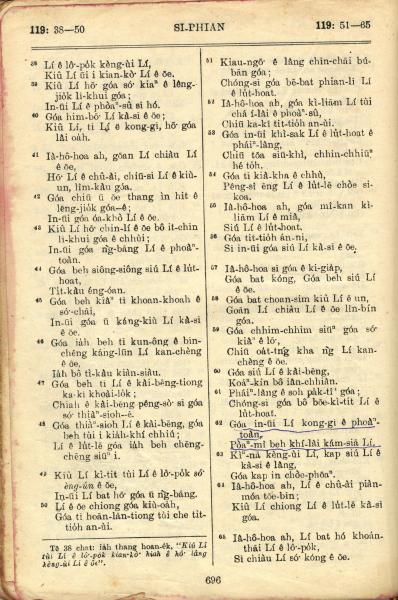 119: 38—50
SI-PHIAN
119: 51—65
38 Lí ê lô͘-po̍k kèng-ùi Lí,
Kiû Lí ūi i kian-kò͘ Lí ê ōe.
39 Kiû Lí hō͘ góa só͘ kiaⁿ ê lêng-
jio̍k lī-khui góa;
In-ūi Lí ê phòaⁿ-sû sī hó.
40 Góa him-bō͘ Lí kà-sī ê ōe;
Kiû Lí, tī Lí ê kong-gī, hō͘ góa
lâi oa̍h.
41 Iâ-hô-hoa ah, goān Lí chiàu Lí
ê ōe,
Hō͘ Lí ê chû-ài, chiū-sī Lí ê kiù-
un, lîm-kàu góa.
42 Góa chiū ū ōe thang ìn hit ê
lêng-jio̍k góa—ê;
In-ūi góa óa-khò Lí ê ōe.
43 Kiû Lí hō͘ chin-lí ê ōe bô it-chīn
lī-khui góa ê chhùi;
In-ūi góa n̄g-bāng Lí ê phòaⁿ-
toàn.
44 Góa beh siông-siông siú Lí ê lu̍t-
hoat,
Ti̍t-kàu éng-óan.
45 Góa beh kiâⁿ tī khoan-khoah ê
só͘-chāi,
In-ūi góa ū káng-kiù Lí kà-sī
ê ōe.
46 Góa ia̍h beh tī kun-ông ê bīn-
chêng káng-lūn Lí kan-chèng
ê ōe,
Ia̍h bô tì-kàu kiàn-siàu.
47 Góa beh tī Lí ê kài-bēng-tiong
ka-kī khoài-lo̍k;
Chiah ê kài-bēng pêng-sò͘ sī góa
só͘ thiàⁿ-sioh—ê.
48 Góa thiàⁿ-sioh Lí ê kài-bēng, góa
beh tùi i kia̍h-khí chhiú;
Lí ê lu̍t-lē góa ia̍h beh chēng-
chēng siūⁿ i.
49 Kiû Lí kì-tit tùi Lí ê lô͘-po̍k só͘
èng-ún ê ōe,
In-ūi Lí bat hō͘ góa ū n̄g-bāng.
50 Lí ê ōe chiong góa kiù-oa̍h,
Góa tī hoān-lān-tiong tùi che tit-
tio̍h an-ùi.
Tē 38 chat: ia̍h thang hoan-e̍k, "Kiû Lí
tùi Lí ê lô͘-po̍k kian-kò͘ hiah ê hō͘ lâng
kèng-ùi Lí ê ōe".
51 Kiau-ngō͘ ê lâng chīn-chāi bú-
bān góa;
Chóng-sī góa bē-bat phian-lī Lí
ê lu̍t-hoat.
52 Iâ-hô-hoa ah, góa kì-liām Lí tùi
chá í-lâi ê phòaⁿ-sû,
Chiū ka-kī tit-tio̍h an-ùi.
53 Góa in-ūi khì-sak Lí ê lu̍t-hoat ê
pháiⁿ-lâng,
Chiū tōa siū-khì, chhin-chhiūⁿ
hé to̍h.
54 Góa tī kià-kha ê chhù,
Pêng-sî ēng Lí ê lu̍t-lē chòe si-
koa.
55 Iâ-hô-hoa ah, góa mî-kan kì-
liām Lí ê miâ,
Siú Lí ê lu̍t-hoat.
56 Góa tit-tio̍h án-ni,
Sī in-ūi góa siú Lí kà-sī ê ōe.
57 Iâ-hô-hoa sī góa ê ki-gia̍p,
Góa bat kóng, Góa beh siú Lí
ê ōe.
58 Góa bat choan-sim kiû Lí ê un,
Goān Lí chiàu Lí ê ōe lîn-bín
góa.
59 Góa chhim-chhim siūⁿ góa só͘
kiâⁿ ê lō͘,
Chiū oa̍t-tńg kha n̂g Lí kan-
chèng ê ōe.
60 Góa siú Lí ê kài-bēng,
Koáⁿ-kín bô iân-chhiân.
61 Pháiⁿ-lâng ê soh pa̍k-tîⁿ góa;
Chóng-sī góa bô bōe-kì-tit Lí ê
lu̍t-hoat.
62 Góa in-ūi Lí kong-gī ê phòaⁿ-
toàn,
Pòaⁿ-mî beh khí-lâi kám-siā Lí.
63 Kìⁿ-nā kèng-ùi Lí, kap siú Lí ê
kà-sī ê lâng,
Góa kap in chòe-phōaⁿ.
64 Iâ-hô-hoa ah, Lí ê chû-ài piàn-
móa tōe-bīn;
Kiû Lí chiong Lí ê lu̍t-lē kà-sī
góa.
65 Iâ-hô-hoa ah, Lí bat hó khoán-
thāi Lí ê lô͘-po̍k,
Sī chiàu Lí só͘ kóng ê ōe.
696